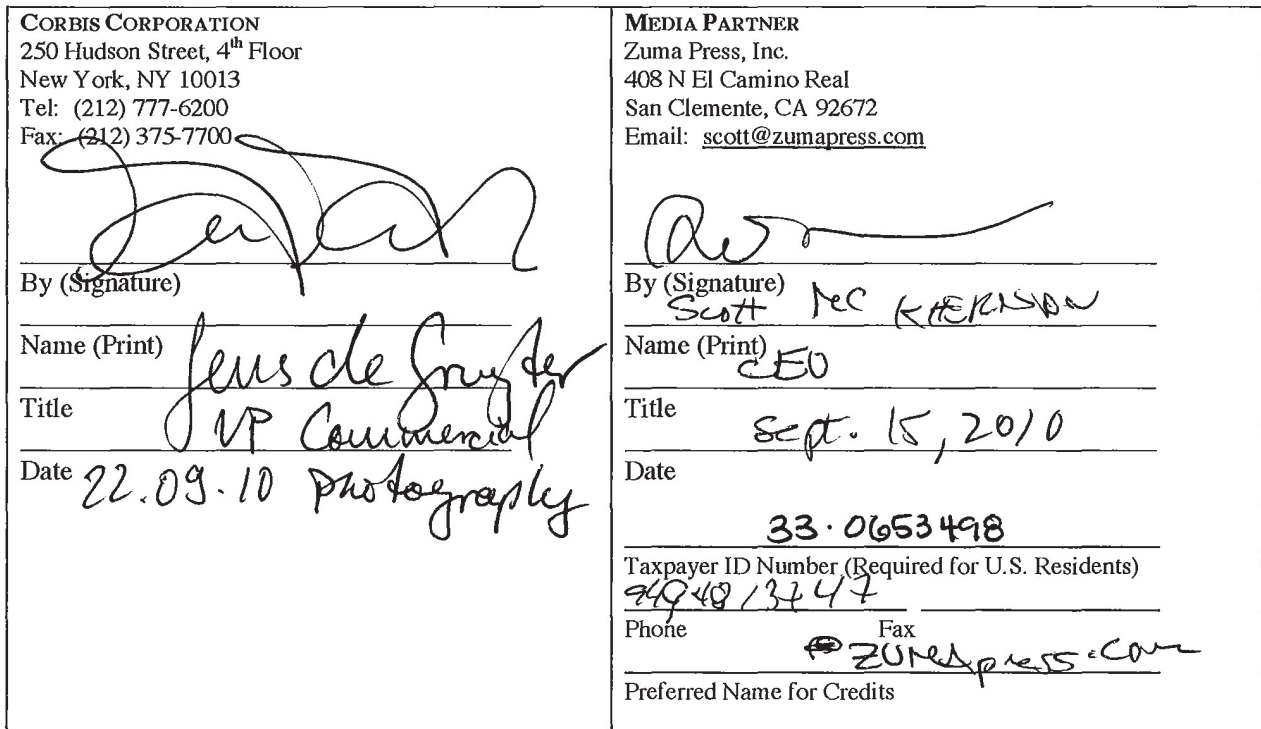 CORBIS CORPORATION
250 Hudson Street, 4th Floor
New York, NY 10013
Tel: (212) 777-6200
Fax: (212) 375-7700
By (Signature)
Name (Print) Jens de Gruyter
Title VP Commercial
Date 22.09.10 photography
MEDIA PARTNER
Zuma Press, Inc.
408 N El Camino Real
San Clemente, CA 92672
Email: scott@zumapress.com
By (Signature)
Scott Mc KIERNAN
Name (Print)
CEO
Title
Sept. 15, 2010
Date
33.0653498
Taxpayer ID Number (Required for U.S. Residents)
Phone Fax
ZUMApress.com
Preferred Name for Credits